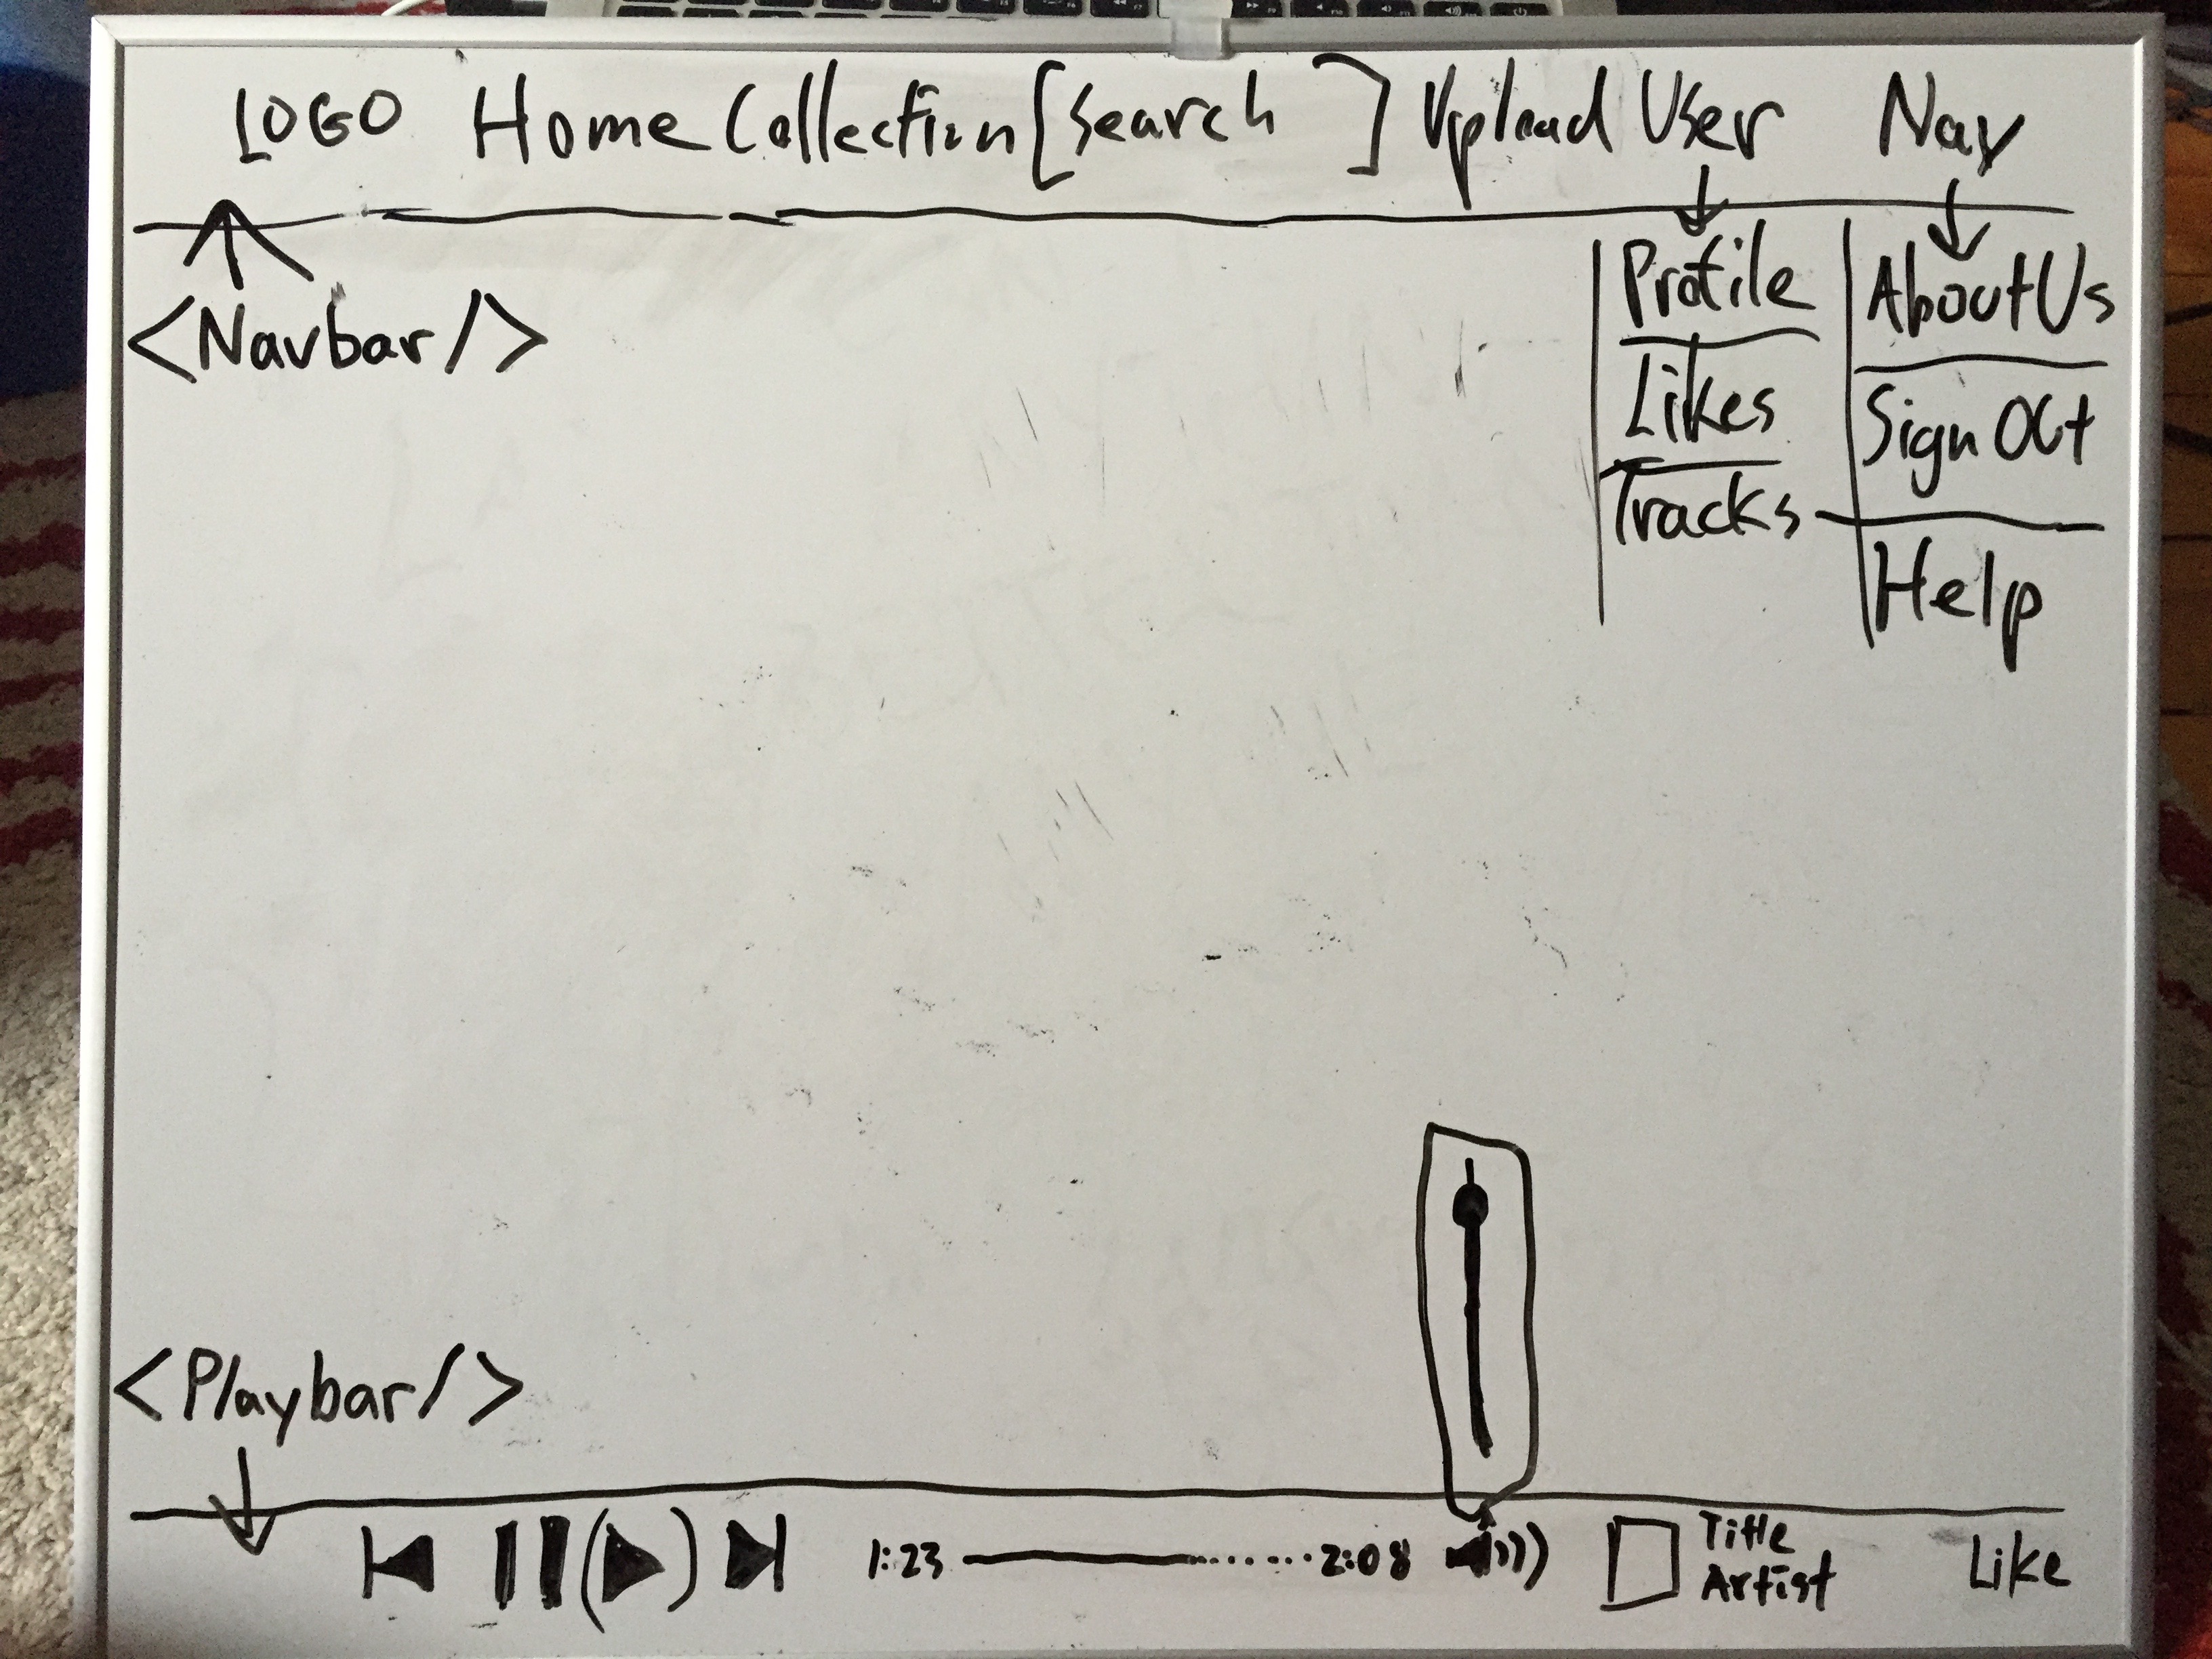 LOGO Home Collection [search ] Upload User Nav
<Navbar/>
Profile
Likes
Tracks
About Us
Sign Out
Help
<Playbar/>
1:23 2:08
Title
Artist
Like